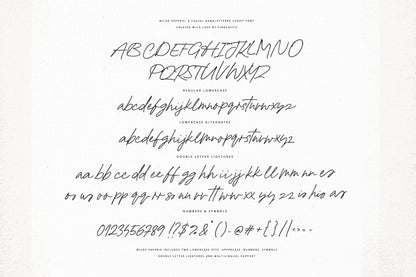 A CASUAL HANDLETTERED SCRIPT FONT
CREATED WITH LOVE BY PINEAPPLE
ABCDEFGHIJKLMNO
PQRSTUVWXYZ
REGULAR LOWERCASE
abcdefghijklmnopqrstuvwxyz
LOWERCASE ALTERNATES
abcdefghijklmnopqrstuvwxyz
DOUBLE LETTER LIGATURES
aa bb cc dd ee ff gg hh ii jj kk ll mm nn es
oo us os pp qq rr ss nu vv tt ww xx yy zz is
NUMBERS & SYMBOLS
0123456789 !?$2&()-@#+{}//<>=-
INCLUDES TWO LOWERCASE SETS, UPPERCASE, NUMBERS, SYMBOLS
DOUBLE LETTER LIGATURES AND MULTILINGUAL SUPPORT